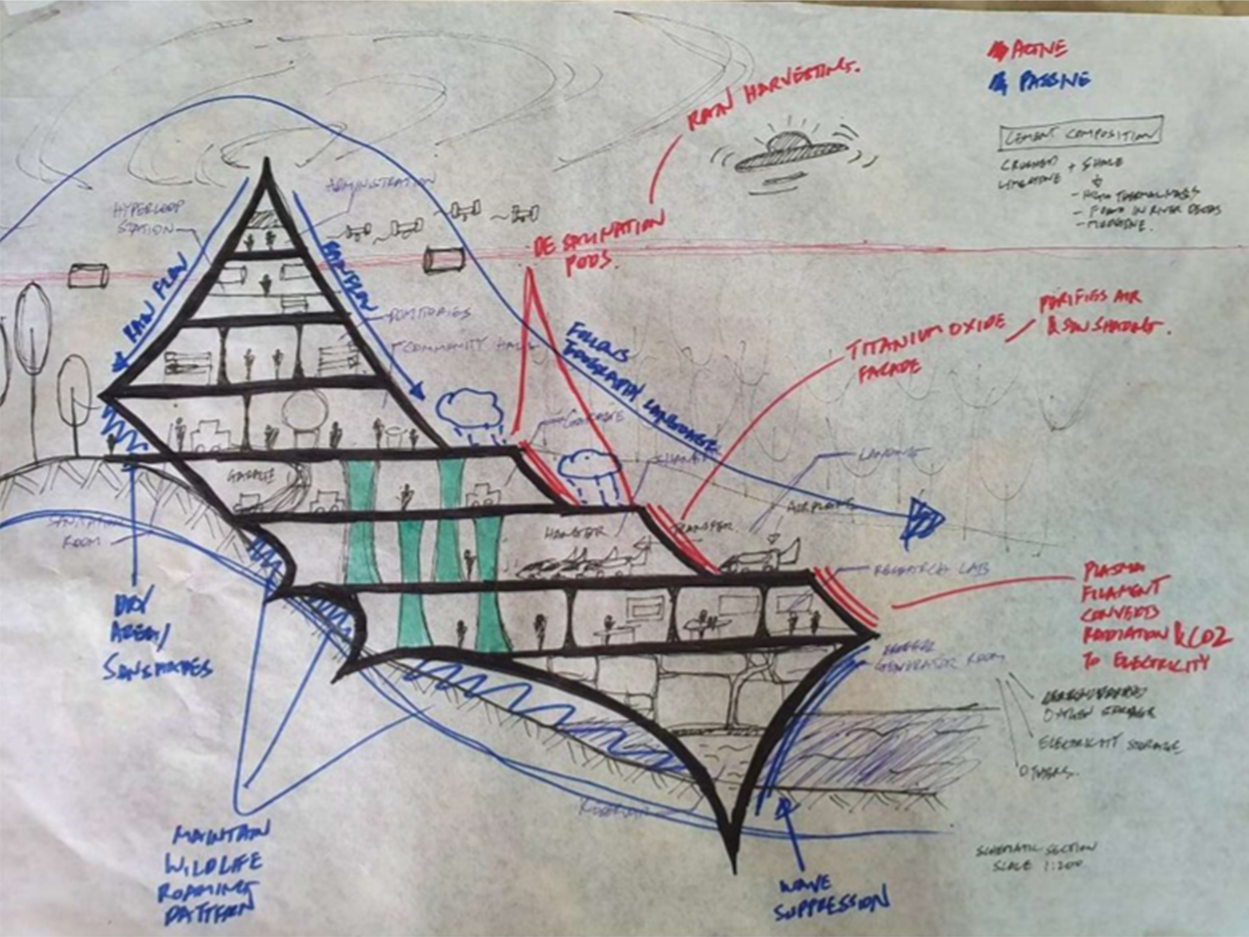 ACTIVE
PASSIVE
RAIN HARVESTING.
CEMENT COMPOSITION
CRUSHED + SHALE
LIMESTONE
- HIGH THERMAL MASS
- FOUND IN RIVER DELTAS
ADMINISTRATION
HYPERLOOP
STATION
DESALINATION
PODS.
RAIN FLOW
RAIN FLOW
DOMITORIES
COMMUNITY HALL
FOLLOWS
TOPOGRAPHY LANGUAGE
PURIFIES AIR
& SUN SHADING.
TITANIUM OXIDE
FACADE
GARAGE
LANDING
SANITATION
ROOM
HANGTER
TRANSFER
AIRPLANE
RESEARCH LAB
PLASMA
FILAMENT
CONVERTS
RADIATION & CO2
TO ELECTRICITY
DRY
AREA/
SUNSHADES
GENERATOR ROOM
ELECTRICITY STORAGE
OTHERS.
RESERVOIR
MAINTAIN
WILDLIFE
ROAMING
PATTERN
SCHEMATIC SECTION
SCALE 1:200
WAVE
SUPPRESSION